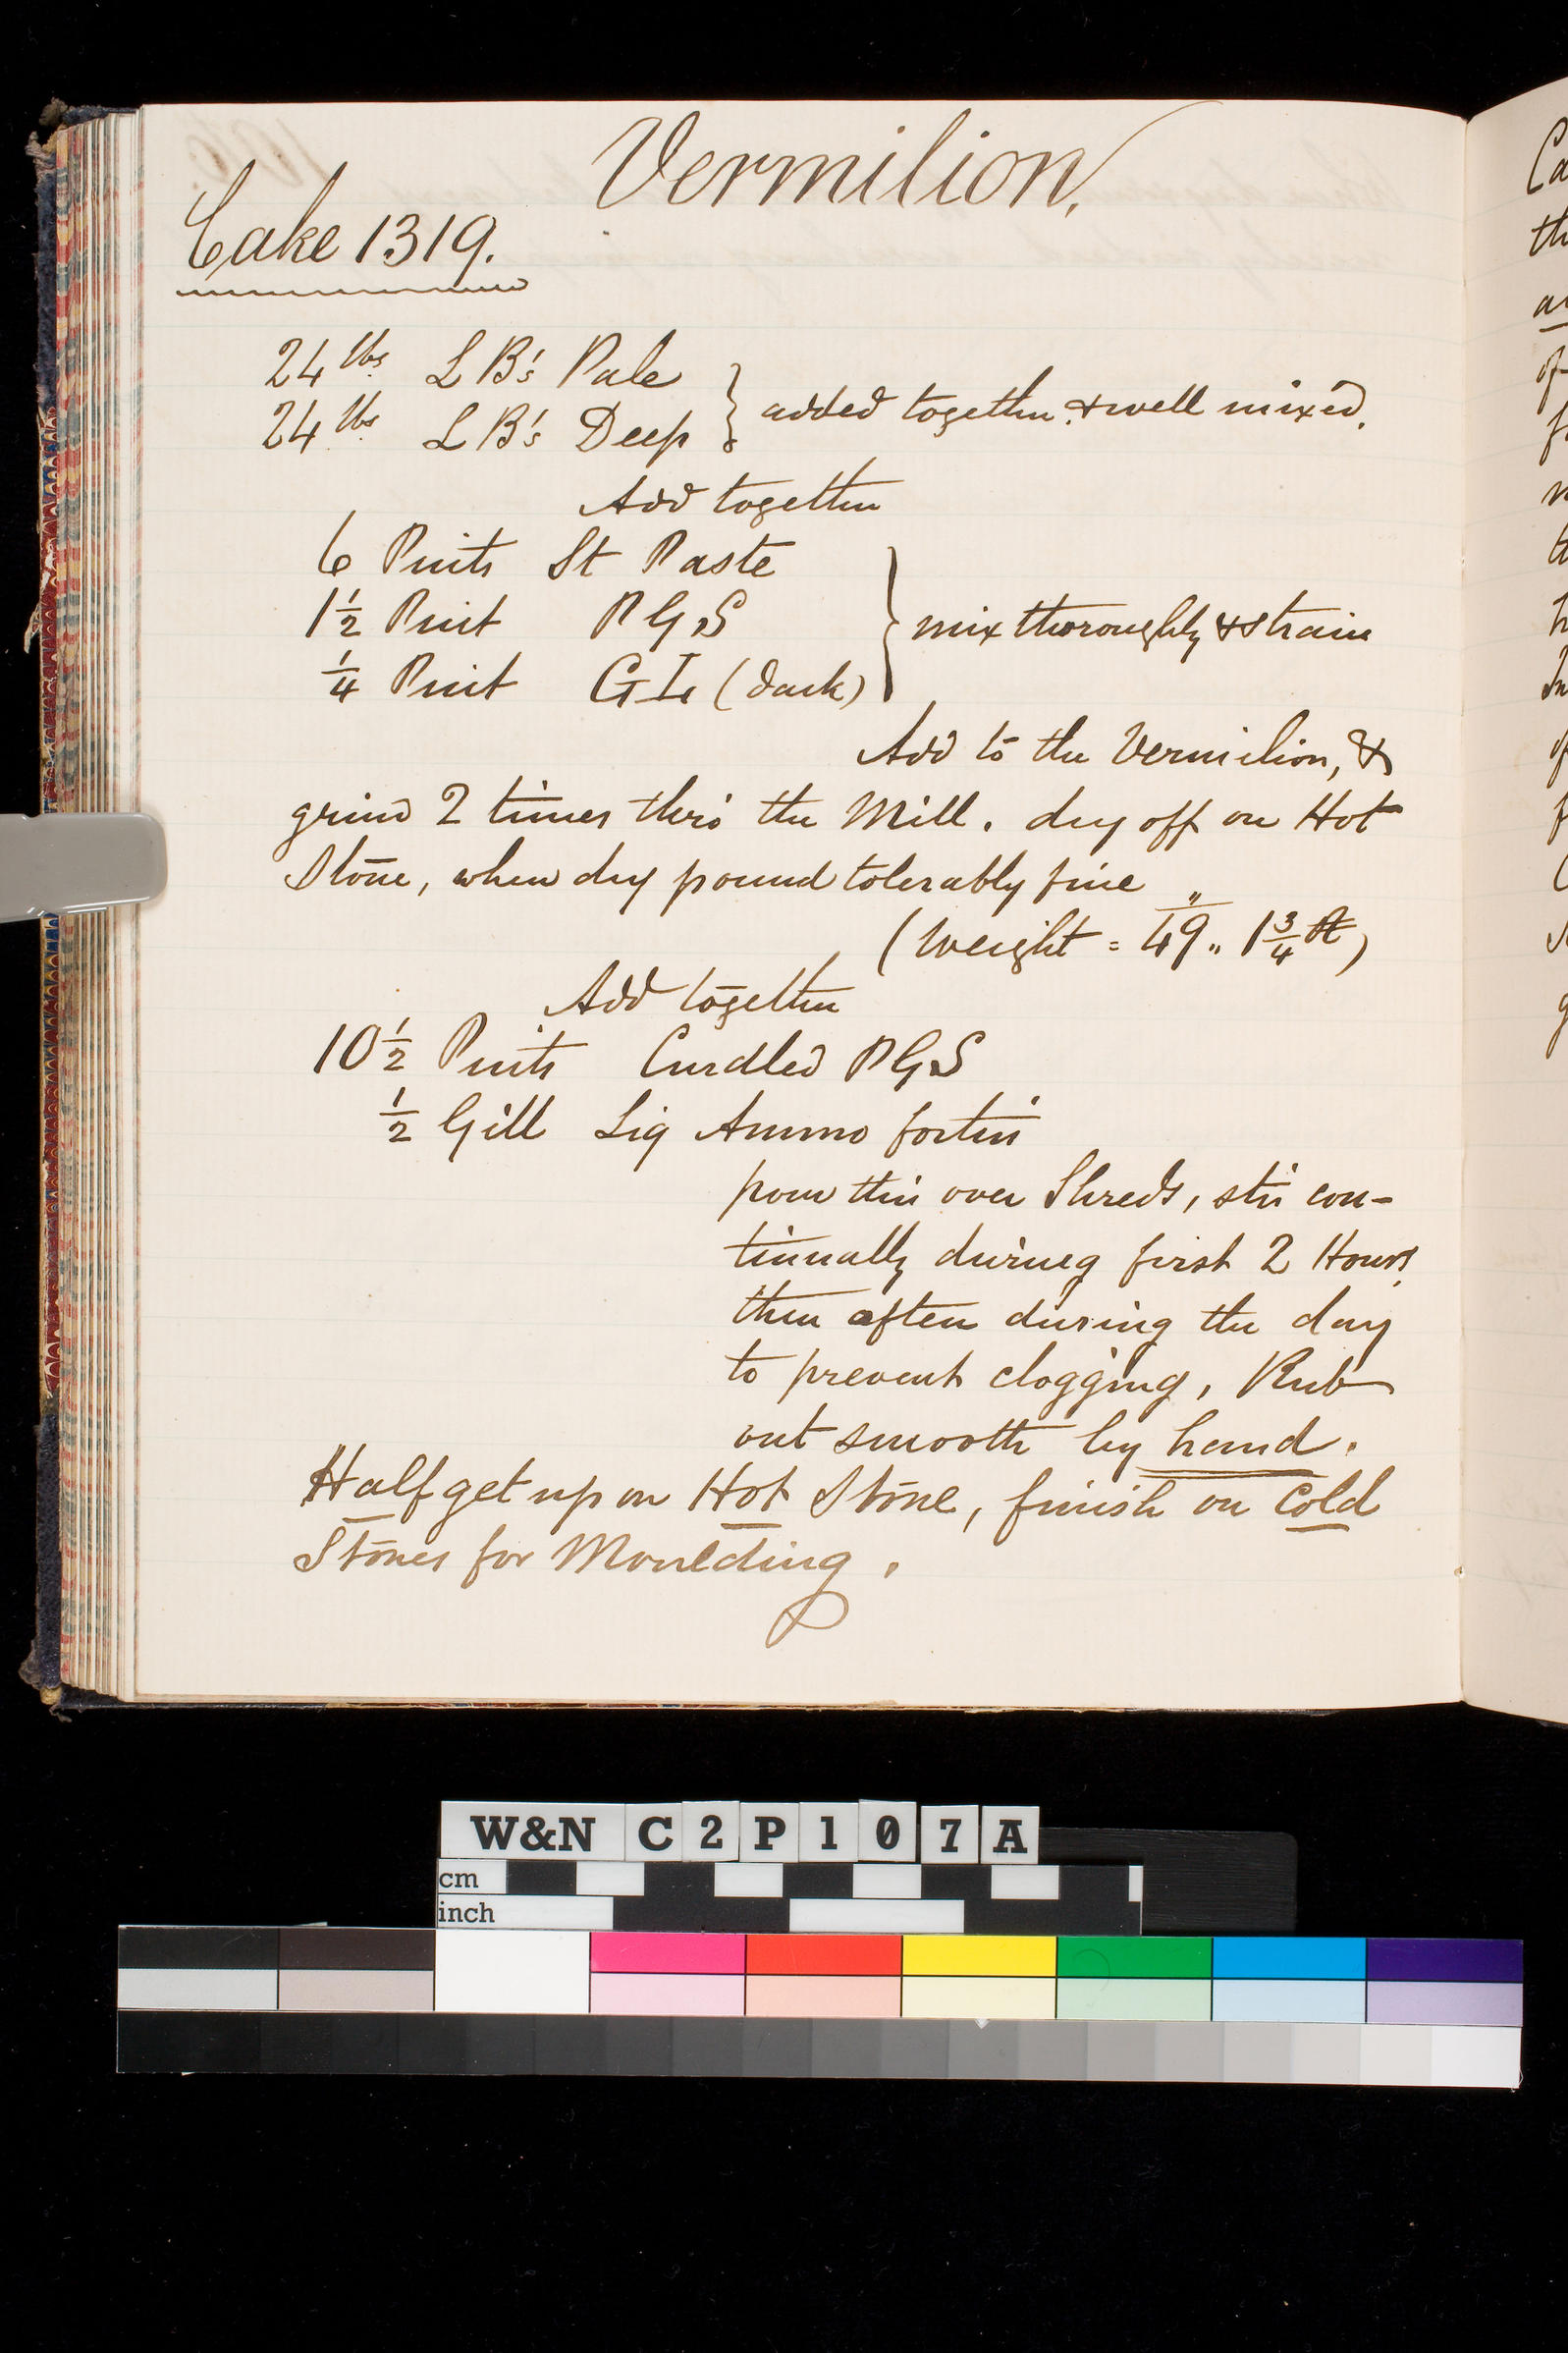 Vermilion,
Cake 1319.
24 lbs L B's Pale
24 lbs L B's Deep } added together & well mixed.
Add together
6 Pints St Paste
1½ Pint P G S } mix thoroughly & strain
¼ Pint G I (dark)
Add to the Vermilion, &
grind 2 times thro' the Mill. dry off on Hot
Stone, when dry pound tolerably fine
(Weight = 49 " 1¾ lb)
Add together
10½ Pints Curdled P G S
½ Gill Liq Ammo fortis
pour this over Shreds, stir con-
tinually during first 2 Hours,
then often during the day
to prevent clogging, Rub
out smooth by hand.
Half get up on Hot Stone, finish on Cold
Stones for Moulding.
W&N C2P107A
cm
inch
Ca
th